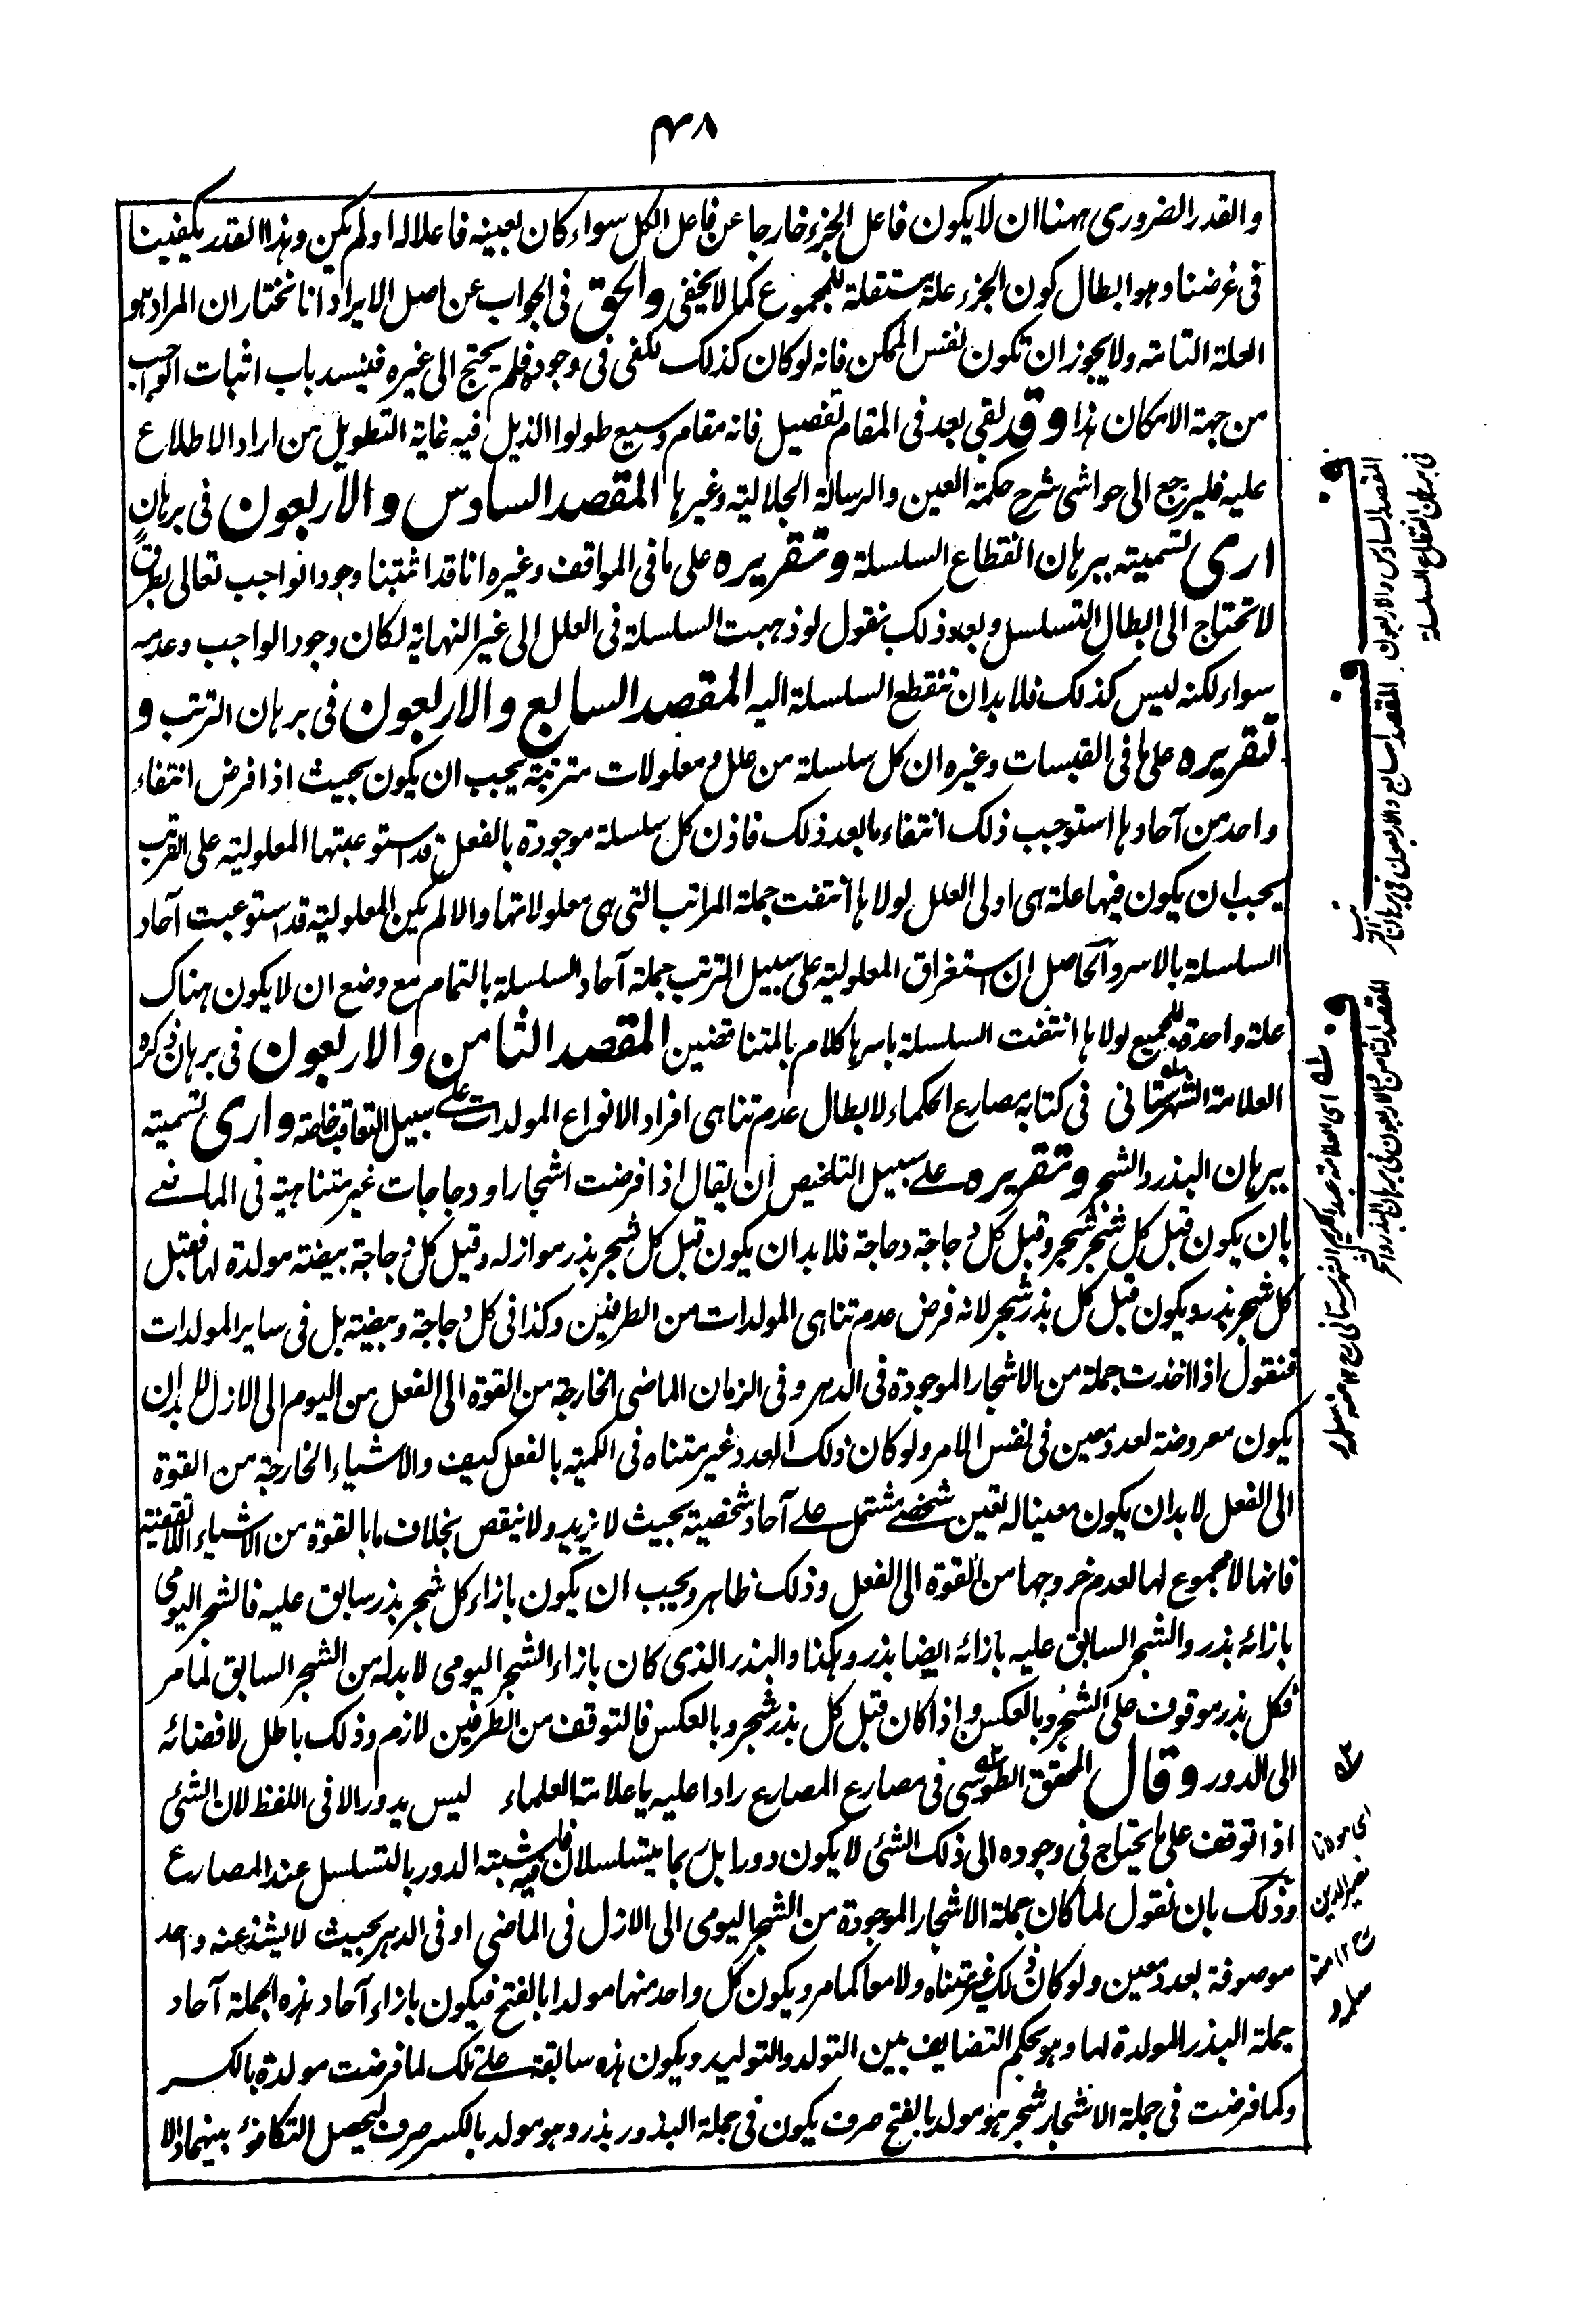 ۴۸
والقدر الضروری ههنا ان لا یکون فاعل الجزء خارجا عن فاعل الکل سواء کان بعینه فاعلا له او لم یکن وهذا القدر یکفینا
فی غرضنا وهو ابطال کون الجزء علة مستقلة للمجموع کما لا یخفی والحق فی الجواب عن اصل الایراد انا نختار ان المراد هو
العلة التامة ولا یجوز ان تکون نفس الممکن فانه لو کان کذلک لکفی فی وجوده فلم یحتج الی غیره فینسد باب اثبات الواجب
من جهة الامکان هذا وقد بقی بعد فی المقام تفصیل فانه مقام وسیع طولوا الذیل فیه غایة التطویل من اراد الاطلاع
علیه فلیرجع الی حواشی شرح حکمة العین والرسالة الجلالیة وغیرها المقصد السادس والاربعون فی برهان
اری تسمیته ببرهان انقطاع السلسلة وتقریره علی ما فی المواقف وغیره انا قد اثبتنا وجود الواجب تعالی بطرق
لا تحتاج الی ابطال التسلسل وبعد ذلک نقول لو ذهبت السلسلة فی العلل الی غیر النهایة لکان وجود الواجب وعدمه
سواء لکنه لیس کذلک فلا بد ان تنقطع السلسلة الیه المقصد السابع والاربعون فی برهان الترتب و
تقریره علی ما فی القبسات وغیره ان کل سلسلة من علل ومعلولات مترتبة یجب ان یکون بحیث اذا فرض انتفاء
واحد من آحادها استوجب ذلک انتفاء ما بعد ذلک فاذن کل سلسلة موجودة بالفعل قد استوعبتها المعلولیة علی الترتب
یجب ان یکون فیها علة هی اولی العلل لولاها انتفت جملة المراتب التی هی معلولاتها والا لم یکن المعلولیة قد استوعبت آحاد
السلسلة بالاسر والحاصل ان استغراق المعلولیة علی سبیل الترتب جملة آحاد السلسلة بالتمام مع وضع ان لا یکون هناک
علة واحدة للجمیع لولاها انتفت السلسلة باسرها کلام بالمتناقضین المقصد الثامن والاربعون فی برهان ذکره
العلامة الشهرستانی فی کتابه مصارع الحکماء لابطال عدم تناهی افراد الانواع المولدات علی سبیل التعاقب خاصة واری تسمیته
ببرهان البذر والشجر وتقریره علی سبیل التلخیص ان یقال اذا فرضت اشجارا ودجاجات غیر متناهیة فی الماضی
بان یکون قبل کل شجر شجر وقبل کل دجاجة دجاجة فلا بد ان یکون قبل کل شجر بذر مواز له وقبل کل دجاجة بیضة مولدة لها فقبل
کل شجر بذر ویکون قبل کل بذر شجر لانه فرض عدم تناهی المولدات من الطرفین وکذا فی کل دجاجة وبیضة بل فی سایر المولدات
فنقول اذا اخذت جملة من الاشجار الموجودة فی الدهر وفی الزمان الماضی الخارجة من القوة الی الفعل من الیوم الی الازل لا بد ان
یکون معروضة لعدد معین فی نفس الامر ولو کان ذلک العدد غیر متناه فی الکمیة بالفعل کیف والاشیاء الخارجة من القوة
الی الفعل لا بد ان یکون معینا له تعین شخصی مشتمل علی آحاد شخصیة بحیث لا یزید ولا ینقص بخلاف ما بالقوة من الاشیاء اللاتقفیة
فانها لا مجموع لها لعدم خروجها من القوة الی الفعل وذلک ظاهر ویجب ان یکون بازاء کل شجر بذر سابق علیه فالشجر الیومی
بازائه بذر والشجر السابق علیه بازائه ایضا بذر وهکذا والبذر الذی کان بازاء الشجر الیومی لا بد له من الشجر السابق لما مر
فکل بذر موقوف علی الشجر وبالعکس واذا کان قبل کل بذر شجر وبالعکس فالتوقف من الطرفین لازم وذلک باطل لافضائه
الی الدور وقال المحقق الطوسی فی مصارع المصارع رادا علیه یا علامة العلماء لیس بدور الا فی اللفظ لان الشئ
اذا توقف علی ما یحتاج فی وجوده الی ذلک الشئ لا یکون دورا بل ربما یتسلسلان فلم یشبه الدور بالتسلسل عند المصارع
وذلک بان نقول لما کان جملة الاشجار الموجودة من الشجر الیومی الی الازل فی الماضی او فی الدهر بحیث لا یشذ عنه واحد
موصوفة بعدد معین ولو کان ذلک غیر متناه ولا معا کما مر ویکون کل واحد منها مولدا بالفتح فیکون بازاء آحاد هذه الجملة آحاد
جملة البذر المولدة لها وهو بحکم التضایف بین التولد والتولید ویکون هذه سابقة علی تلک لما فرضت مولدة بالکسر
وکما فرضت فی جملة الاشجار شجر هو مولد بالفتح صرف یکون فی جملة البذور بذر وهو مولد بالکسر صرف لیحصل التکافؤ بینهما والا
ف المقصد السادس والاربعون
فی برهان انقطاع السلسلة
ف المقصد السابع والاربعون فی برهان الترتب
ف المقصد الثامن والاربعون فی برهان البذر والشجر
ای العلامة عبد الکریم الشهرستانی رح ۱۲ منه سلمه
ای مولانا
نصیر الدین
رح ۱۲ منه
سلمه